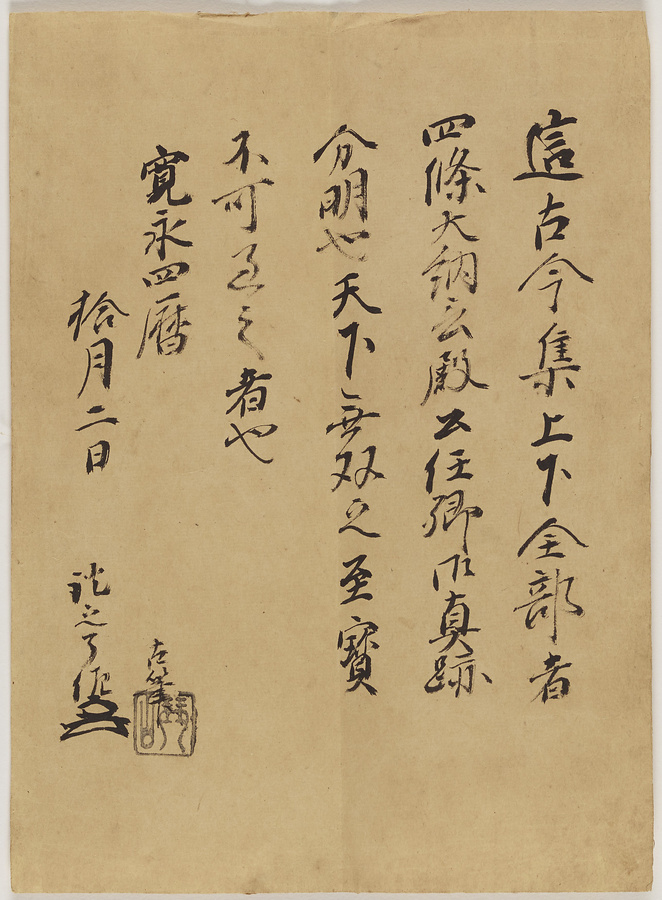 這古今集上下全部者
四條大納言殿公任卿御真跡
分明也天下無双之至寶
不可過之者也
寛永四暦
拾月二日
古筆
證之了佐